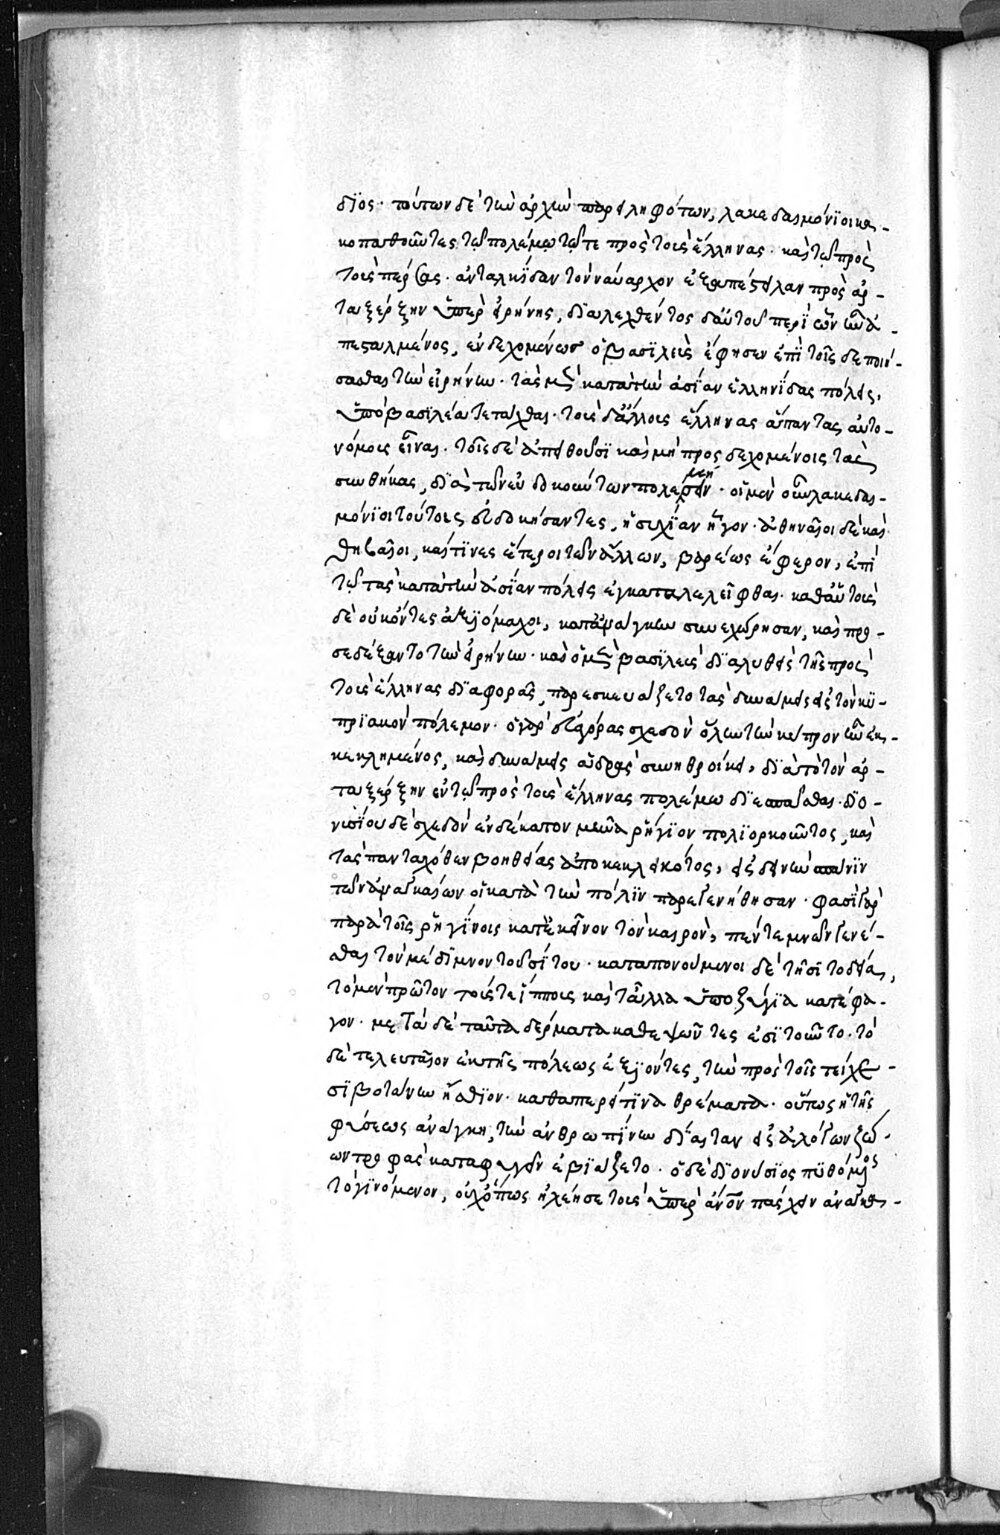 δϊος· τούτων δὲ τὴν ἀρχὴν παρειληφότων, λακεδαιμόνϊοι κα-
κοπαθοῦντες τῷ πολέμῳ τῷ τε πρὸς τοὺς ἕλληνας· καὶ τῷ πρὸς
τοὺς πέρσας· ἀνταλκίδαν τὸν ναύαρχον ἐξαπέστειλαν πρὸς ἀρ-
ταξέρξην ὑπὲρ εἰρήνης, διαλεχθέντος δ' αὐτοῦ περὶ ὧν ἦν ἀ-
πεσταλμένος, ἐνδεχομένως ὁ βασϊλεὺς ἔφησεν ἐπὶ τοῖσδε ποιή-
σασθαι τὴν εἰρήνην· τὰς μὲν κατὰ τὴν ἀσίαν ἑλληνίδας πόλεις,
ὑπὸ βασιλέα τετάχθαι· τοὺς δ' ἄλλους ἕλληνας ἅπαντας αὐτο-
νόμους εἶναι· τοῖς δὲ ἀπειθοῦσϊ καὶ μὴ προσδεχομένοις τὰς
συνθήκας, δϊὰ τῶν εὐδοκούντων πολεμήσειν· οἱ μὲν οὖν λακεδαι-
μόνϊοι τούτοις εὐδοκήσαντες, ἡσυχίαν ἦγον· ἀθηναῖοι δὲ καὶ
θηβαῖοι, καί τϊνες ἕτεροι τῶν ἄλλων, βαρέως ἔφερον, ἐπὶ
τῷ τὰς κατὰ τὴν ἀσίαν πόλεις ἐγκαταλελεῖφθαι· καθ' αὑτοὺς
δὲ οὐκ ὄντες ἀξϊόμαχοι, κατ' ἀνάγκην συνεχώρησαν, καὶ προ-
σεδέξαντο τὴν εἰρήνην· καὶ ὁ μὲν βασϊλεὺς δϊαλυθεὶς τῆς πρὸς
τοὺς ἕλληνας δϊαφορᾶς, παρεσκευάζετο τὰς δυνάμεις εἰς τὸν κϋ-
πρϊακὸν πόλεμον· ὁ γὰρ εὐαγόρας σχεδὸν ὅλην τὴν κύπρον ἦν ἐκ-
κεκλημένος, καὶ δυνάμεις ἁδρὰς συνηθροίκει, δϊὰ τὸ τὸν ἀρ-
ταξέρξην ἐν τῷ πρὸς τοὺς ἕλληνας πολέμω δϊεσπάσθαι· δϊο-
νυσίου δὲ σχεδὸν ἑνδέκατον μῆνα ῥήγϊον πολϊορκοῦντος, καὶ
τὰς πανταχόθεν βοηθείας ἀποκεκλεικότος, εἰς δεινὴν σπάνϊν
τῶν ἀναγκαίων οἱ κατὰ τὴν πόλϊν παρεγενήθησαν· φασὶ γὰρ
παρὰ τοῖς ῥηγίνοις κατ' ἐκεῖνον τὸν καιρὸν, πέντε μνῶν γενέ-
σθαι τὸν μέδϊμνον τοῦ σίτου· καταπονούμενοι δὲ τῇ σϊτοδείᾳ,
τὸ μὲν πρῶτον τούς τε ἵππους καὶ τἆλλα ὑποζύγϊα κατέφα-
γον· μετὰ δὲ ταῦτα δέρματα καθέψοῦντες ἐσιτοῦντο· τὸ
δὲ τελευταῖον ἐκ τῆς πόλεως ἐξϊόντες, τὴν πρὸς τοῖς τείχε-
σϊ βοτάνην ἤσθϊον· καθάπερ εἴ τϊνα θρέμματα· οὕτως ἡ τῆς
φύσεως ἀνάγκη, τὴν ἀνθρωπίνην δίαιταν εἰς ἀλόγων ζώ-
ων τροφὰς καταφυγεῖν ἐβϊάζετο· ὁ δὲ δϊονύσϊος πϋθόμενος
τὸ γϊνόμενον, οὐχ ὅπως ἠλέησε τοὺς ὑπὲρ ἄνθρωπον πάσχειν ἀναγκα-